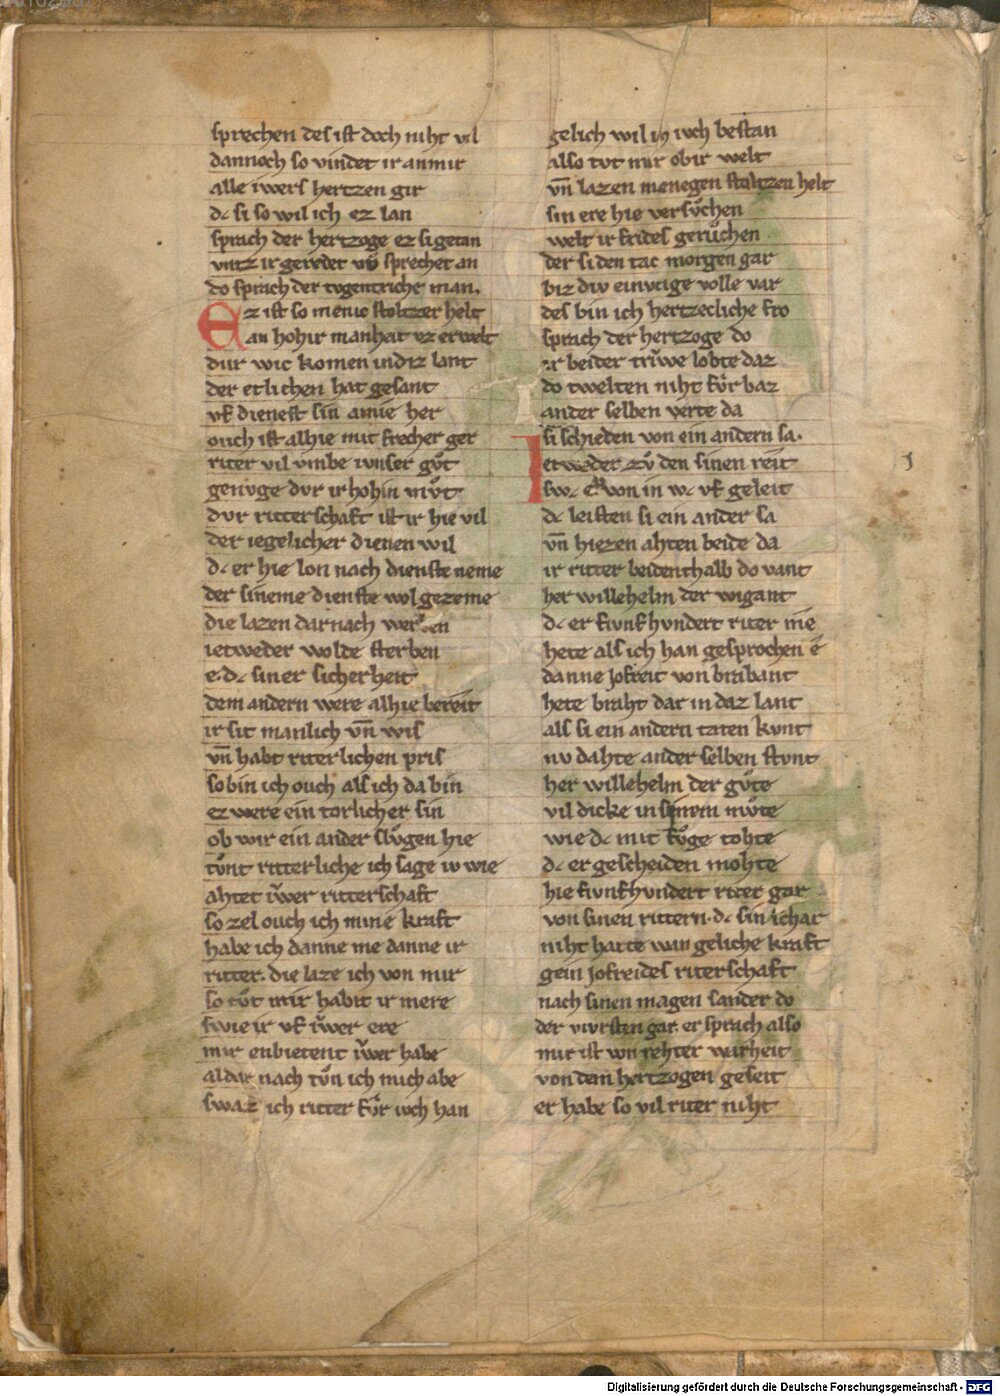 sprechen des ist doch niht vil
dannoch so vindet ir an mir
alle iwers hertzen gir
d᷒ si so wil ich ez lan
sprach der hertzoge ez si getan
untz ir geredet un̄ sprechet an
do sprach der tvgentriche man.
Ez ist so menic stoltzer helt
an hohir manheit vz erwelt
dur wic komen indiz lant
der etlichen hat gesant
vf dienest sin amie her
ouch ist alhie mit frecher ger
riter vil vmbe iwnser gůt
genvge dvr ir hohin mvͦt
dvr ritterschaft ist ir hie vil
der iegelicher dienen wil
d᷒ er hie lon nach dienste neme
der sineme dienste wol gezeme
die lazen dar nach werben
ietweder wolde sterben
e. d᷒ siner sicherheit
dem andern were alhie bereit
ir sit manlich vn̄ wis
vn̄ habt riterlichen pris
so bin ich ouch als ich da bin
ez were ein torlicher sin
ob wir ein ander slv̊gen hie
tůnt ritterliche ich sage iv wie
ahtet iw̌er ritterschaft
so zel ouch ich mine kraft
habe ich danne me danne ir
ritter. die laze ich von mir
so tůt mir habit ir mere
swie ir vf iw̌er ere
mir enbietent iw̌er habe
aldar nach tůn ich mich abe
swaz ich ritter fv̊r ivch han
gelich wil ich ivch bestan
also tvt mir obir welt
vn̄ lazen menegen stoltzen helt
sin ere hie versv̊chen
welt ir frides gerůchen
der si den tac morgen gar
biz div einvnge volle var
des bin ich hertzecliche fro
sprach der hertzoge do
ir beider trůwe lobte daz
do twelten niht fv̊r baz
an der selben verte da
Isi schieden von ein andern sa.
ietweder zů den sinen reit
sw᷒ von in w᷒ vf geleit
d᷒ leisten si ein ander sa
vn̄ hiezen ahten beide da
ir ritter beidenthalb do vant
her willehelm der wigant
d᷒ er fivnfhvndert riter me
hete als ich han gesprochen e
danne jofreit von brabant
hete braht dar in daz lant
als si ein andern taten kvnt
nv dahte an der selben stvnt
her willehelm der gůte
vil dicke in sinem mv̊te
wie d᷒ mit fůge tohte
d᷒ er gescheiden mohte
hie fivnfhvndert riter gar
von sinen rittern. d᷒ sin schar
niht hatte wan geliche kraft
gein jofreides riterschaft
nach sinen magen sander do
der vursten gar. er sprach also
mir ist von rehter warheit
von dem hertzogen geseit
er habe so vil riter niht
Digitalisierung gefördert durch die Deutsche Forschungsgemeinschaft - DFG